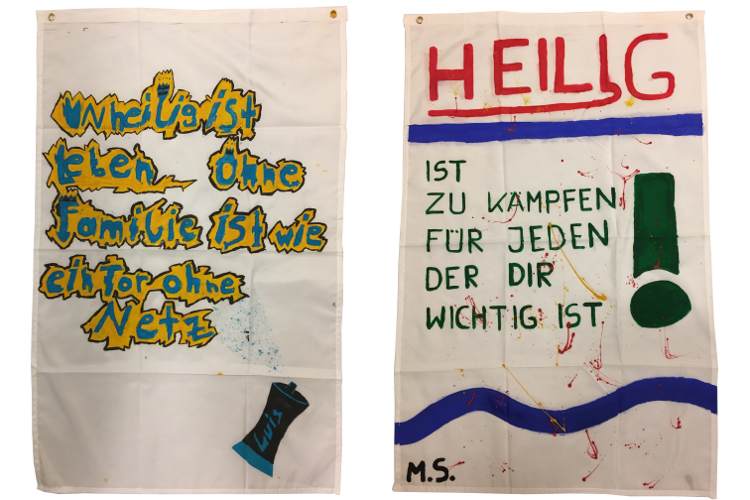 unheilig ist
leben ohne
familie ist wie
ein Tor ohne
Netz
Luis
HEILIG
IST
ZU KÄMPFEN
FÜR JEDEN
DER DIR
WICHTIG IST !
M.S.